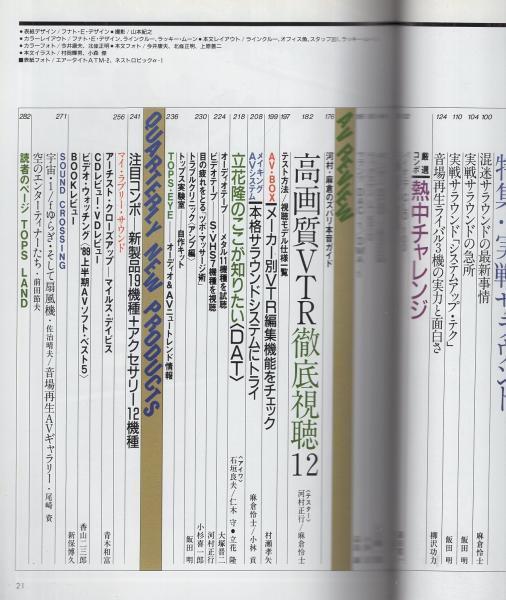 ●表紙デザイン/フナト・E・デザイン●撮影/山本紀之
●カラーレイアウト/フナト・E・デザイン、ラインクルー、ラッキー・ムーン●本文レイアウト/ラインクルー、オフィス魚、スタッフ
●カラーフォト/今井康夫、北畠正明●本文フォト/今井康夫、北畠正明、上原善二
●本文イラスト/村岡輝男、小森 傑
■表紙フォト/エアータイトATM-2、ネストロビックα-1
特集・実戦サラウンド
100 混迷サラウンドの最新事情 麻倉怜士
104 実戦サラウンドの急所 飯田 明
110 実戦サラウンド「システムアップ・テク」 飯田 明
124 音場再生ライバル3機の実力と面白さ 柳沢功力
厳選コンポ 熱中チャレンジ
AV REVIEW
176 河村・麻倉のズバリ本音ガイド
182 高画質VTR徹底視聴12 〈テスター〉河村正行/麻倉怜士
197 テスト方法/視聴モデル仕様一覧
199 AV・BOX メーカー別VTR編集機能をチェック 村瀬孝矢
208 メイキングAVシステム 本格サラウンドシステムにトライ 麻倉怜士/小林 貢
218 立花隆のここが知りたい〈DAT〉 〈アイワ〉石垣良夫/仁木 守●立花 隆
224 オーディオテープ メタル11機種を試聴 大塚晋二
ビデオテープ S-VHS7機種を視聴 河村正行
230 目の疲れをとる「ツボ・マッサージ術」
トラブルクリニック〈アンプ編〉 小杉喜一郎
トップス実験室 自作キット 飯田 明
236 TOPS・EYE オーディオ&AVニュートレンド情報
QUARTERLY NEW PRODUCTS
241 注目コンポ 新製品19機種+アクセサリー12機種
256 マイ・ラブリー・サウンド
アーチスト・クローズアップ マイルス・デイビス 青木和富
CDレビュー・CVDレビュー
ビデオ・ウォッチング〈'89上半期AVソフト・ベスト5〉 香山二三郎
BOOKレビュー 新保博久
271 SOUND CROSSING
宇宙・1/fゆらぎ・そして扇風機・佐治晴夫/音場再生AVギャラリー・尾崎 資
空のエンターティナーたち・前田節夫
282 読者のページ TOPS LAND
21